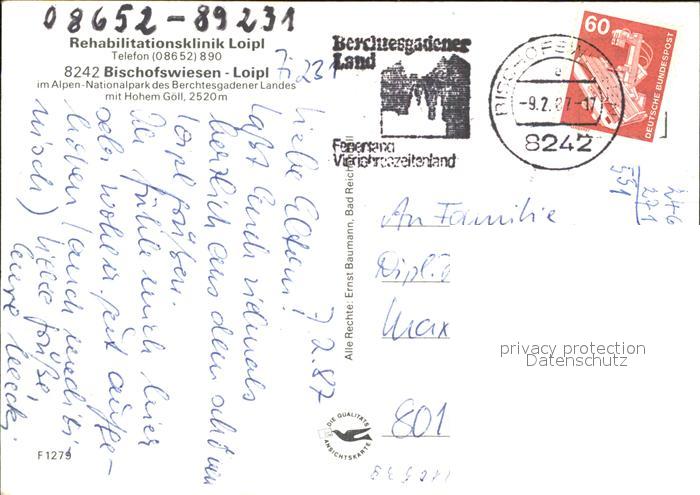 08652-89231
Rehabilitationsklinik Loipl
Telefon (08652) 890
8242 Bischofswiesen - Loipl
im Alpen-Nationalpark des Berchtesgadener Landes
mit Hohem Göll, 2520 m
Zi 231
7.2.87
Liebe Eltern!
Laßt Euch vielmals
herzlich aus dem schönen
Loipl grüßen.
Ich fühle mich hier
sehr wohl u. gut aufge-
hoben (auch medizi-
nisch) Liebe Grüße
Eure
Berchtesgadener
Land
Ferienland
Vierjahreszeitenland
BISCHOFSW
-9.2.87-17
8242
60
DEUTSCHE BUNDESPOST
246
551
An Familie
Dipl
Max
801
Alle Rechte: Ernst Baumann, Bad Reich
DIE QUALITÄTS
ANSICHTSKARTE
privacy protection
Datenschutz
F 1279